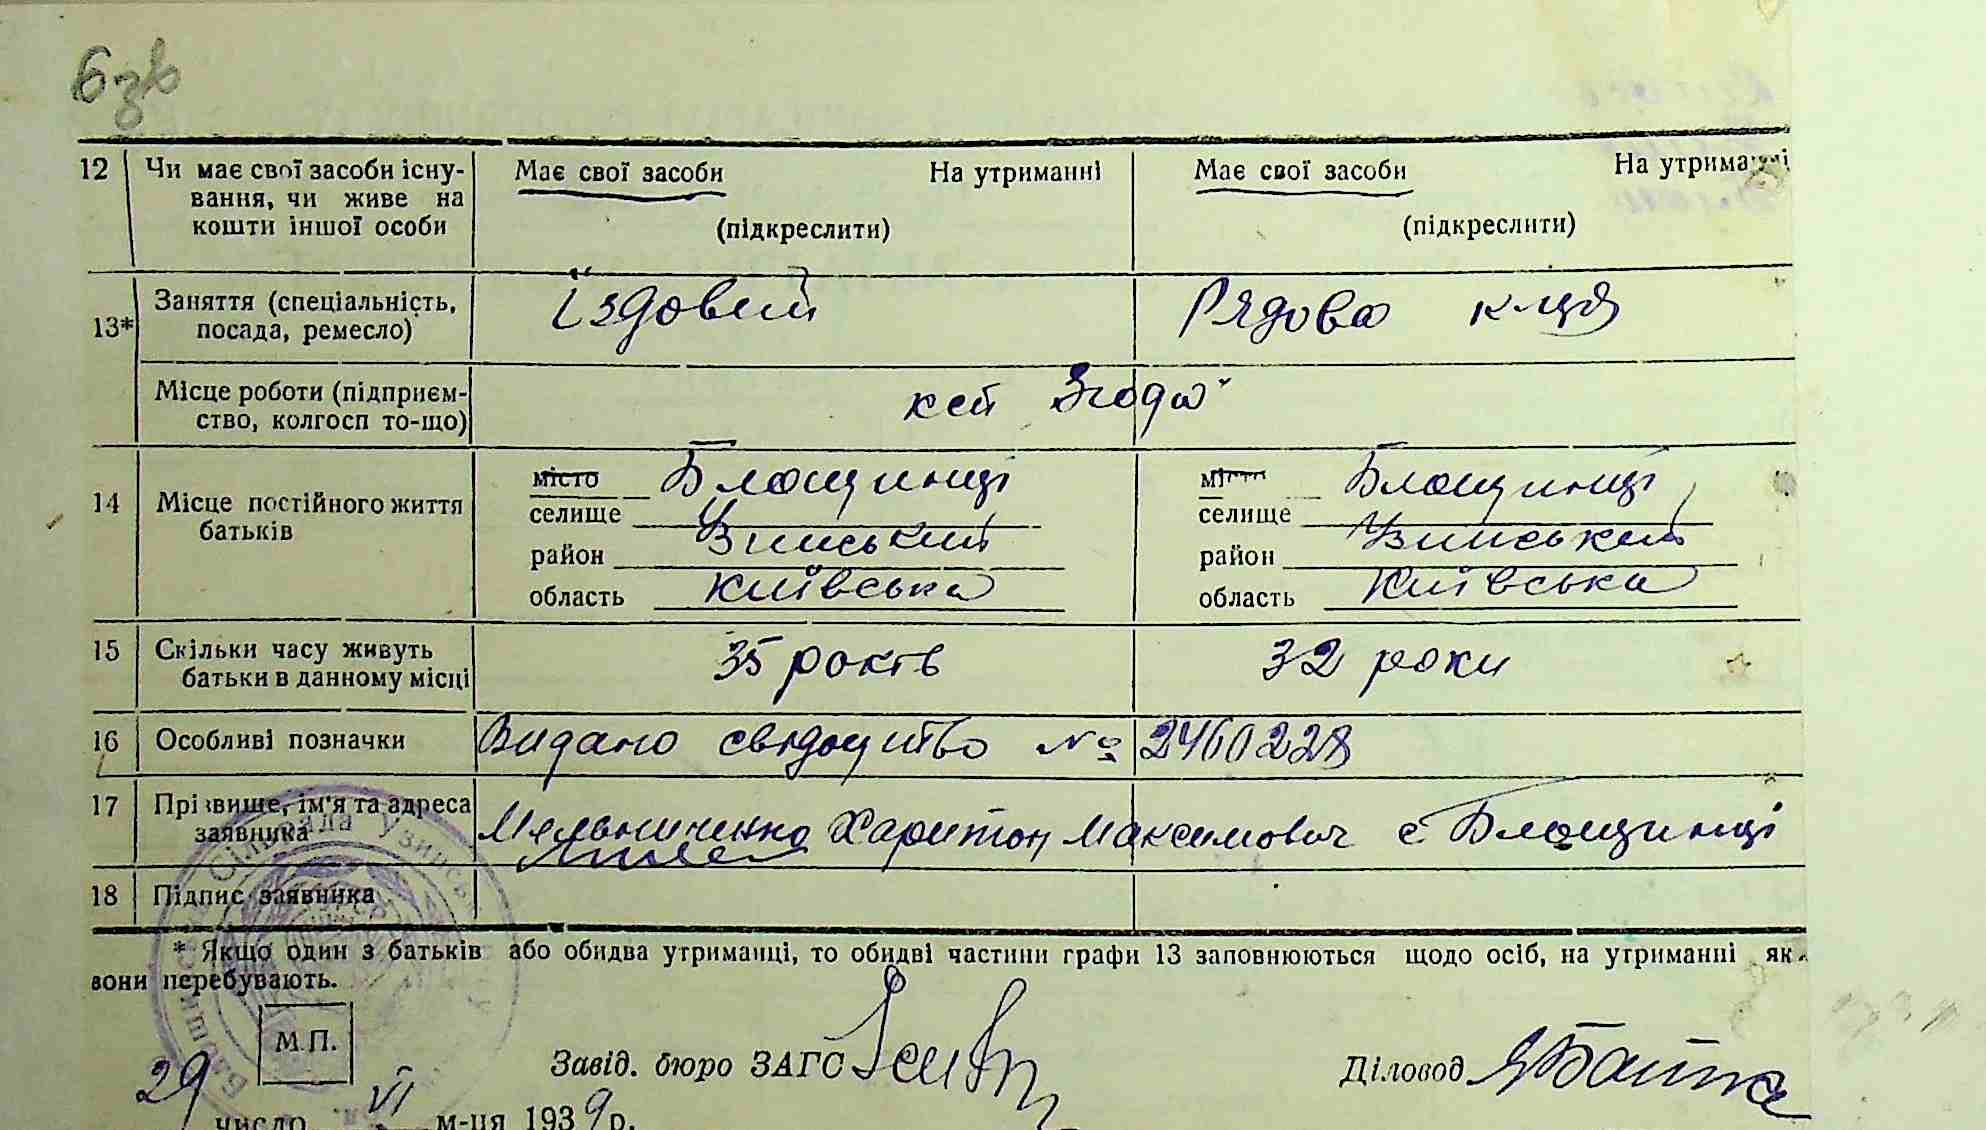 6зв
12 Чи має свої засоби існу- Має свої засоби На утриманні Має свої засоби На утриманні
вання, чи живе на
кошти іншої особи (підкреслити) (підкреслити)
13* Заняття (спеціальність, їздовий Рядова к-ця
посада, ремесло)
Місце роботи (підприєм- ксп Згода
ство, колгосп то-що)
місто Блощинці місто Блощинці
14 Місце постійного життя селище селище
батьків район Узинський район Узинський
область Київська область Київська
15 Скільки часу живуть 35 років 32 роки
батьки в данному місці
16 Особливі позначки Видано свідоцтво № 2460228
17 Прізвище, ім'я та адреса Мельниченко Харитон Максимович с Блощинці
заявника
18 Підпис заявника
* Якщо один з батьків або обидва утриманці, то обидві частини графи 13 заповнюються щодо осіб, на утриманні як
вони перебувають.
М.П.
Завід. бюро ЗАГС Діловод
29 число VI м-ця 1939 р.